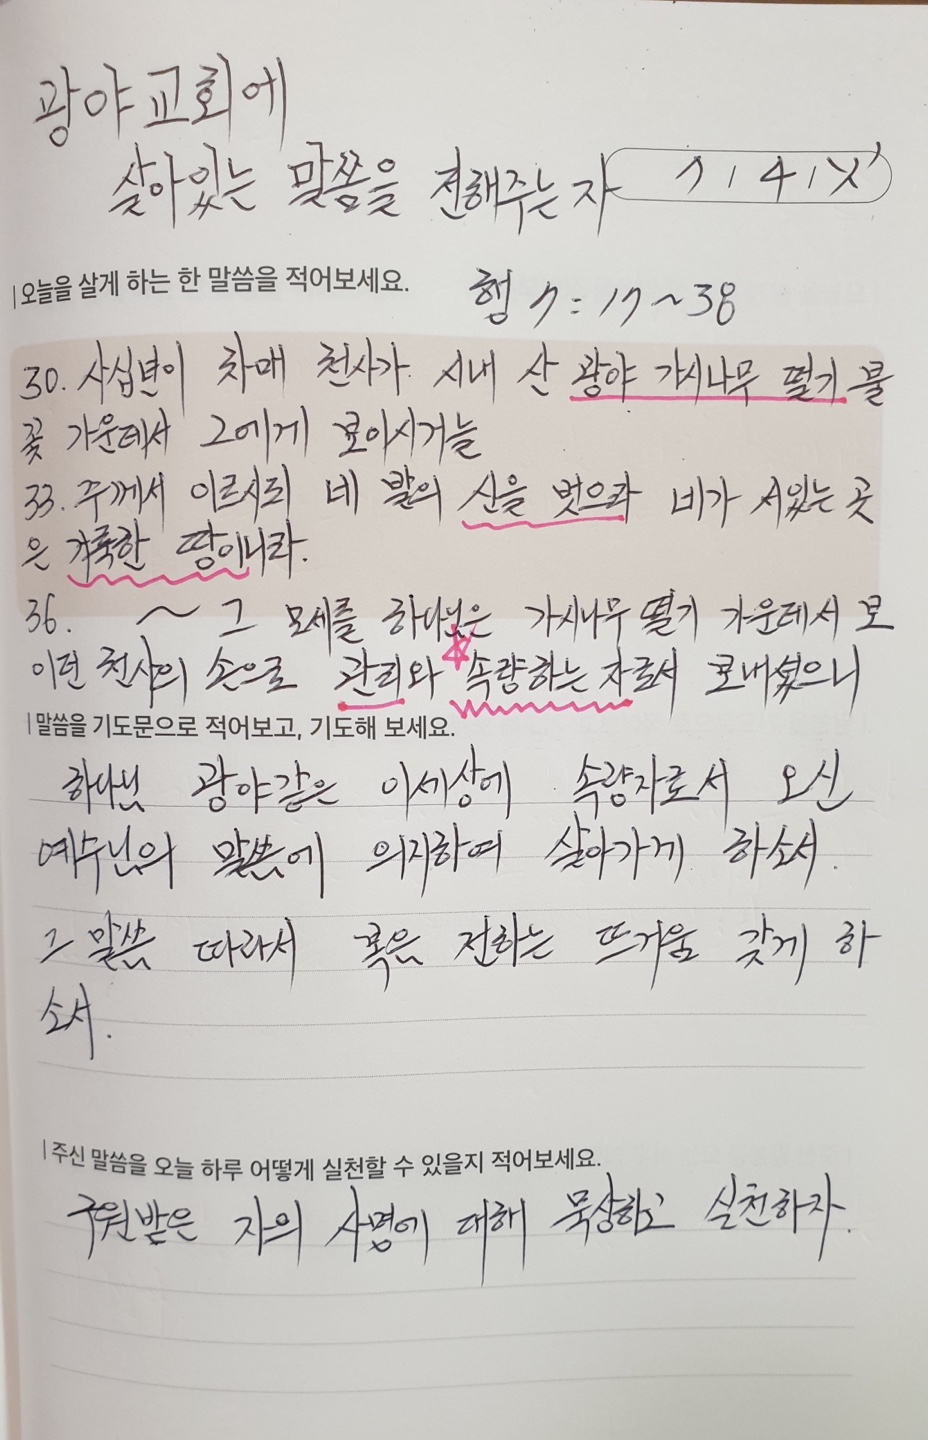 광야교회에
살아있는 말씀을 전해주는 자
| 오늘을 살게 하는 한 말씀을 적어보세요. 행 7 : 17 ~ 38
30. 사십년이 차매 천사가 시내 산 광야 가시나무 떨기 불
꽃 가운데서 그에게 보이시거늘
33. 주께서 이르시되 네 발의 신을 벗으라 네가 서있는 곳
은 거룩한 땅이니라.
36. ~ 그 모세를 하나님은 가시나무 떨기 가운데서 보
이던 천사의 손으로 관리와 속량하는 자로서 보내셨으니
| 말씀을 기도문으로 적어보고, 기도해 보세요.
하나님 광야같은 이세상에 속량자로서 오신
예수님의 말씀에 의지하여 살아가게 하소서.
그 말씀 따라서 혹은 전하는 뜨거움 갖게 하
소서.
| 주신 말씀을 오늘 하루 어떻게 실천할 수 있을지 적어보세요.
구원받은 자의 사명에 대해 묵상하고 실천하자.